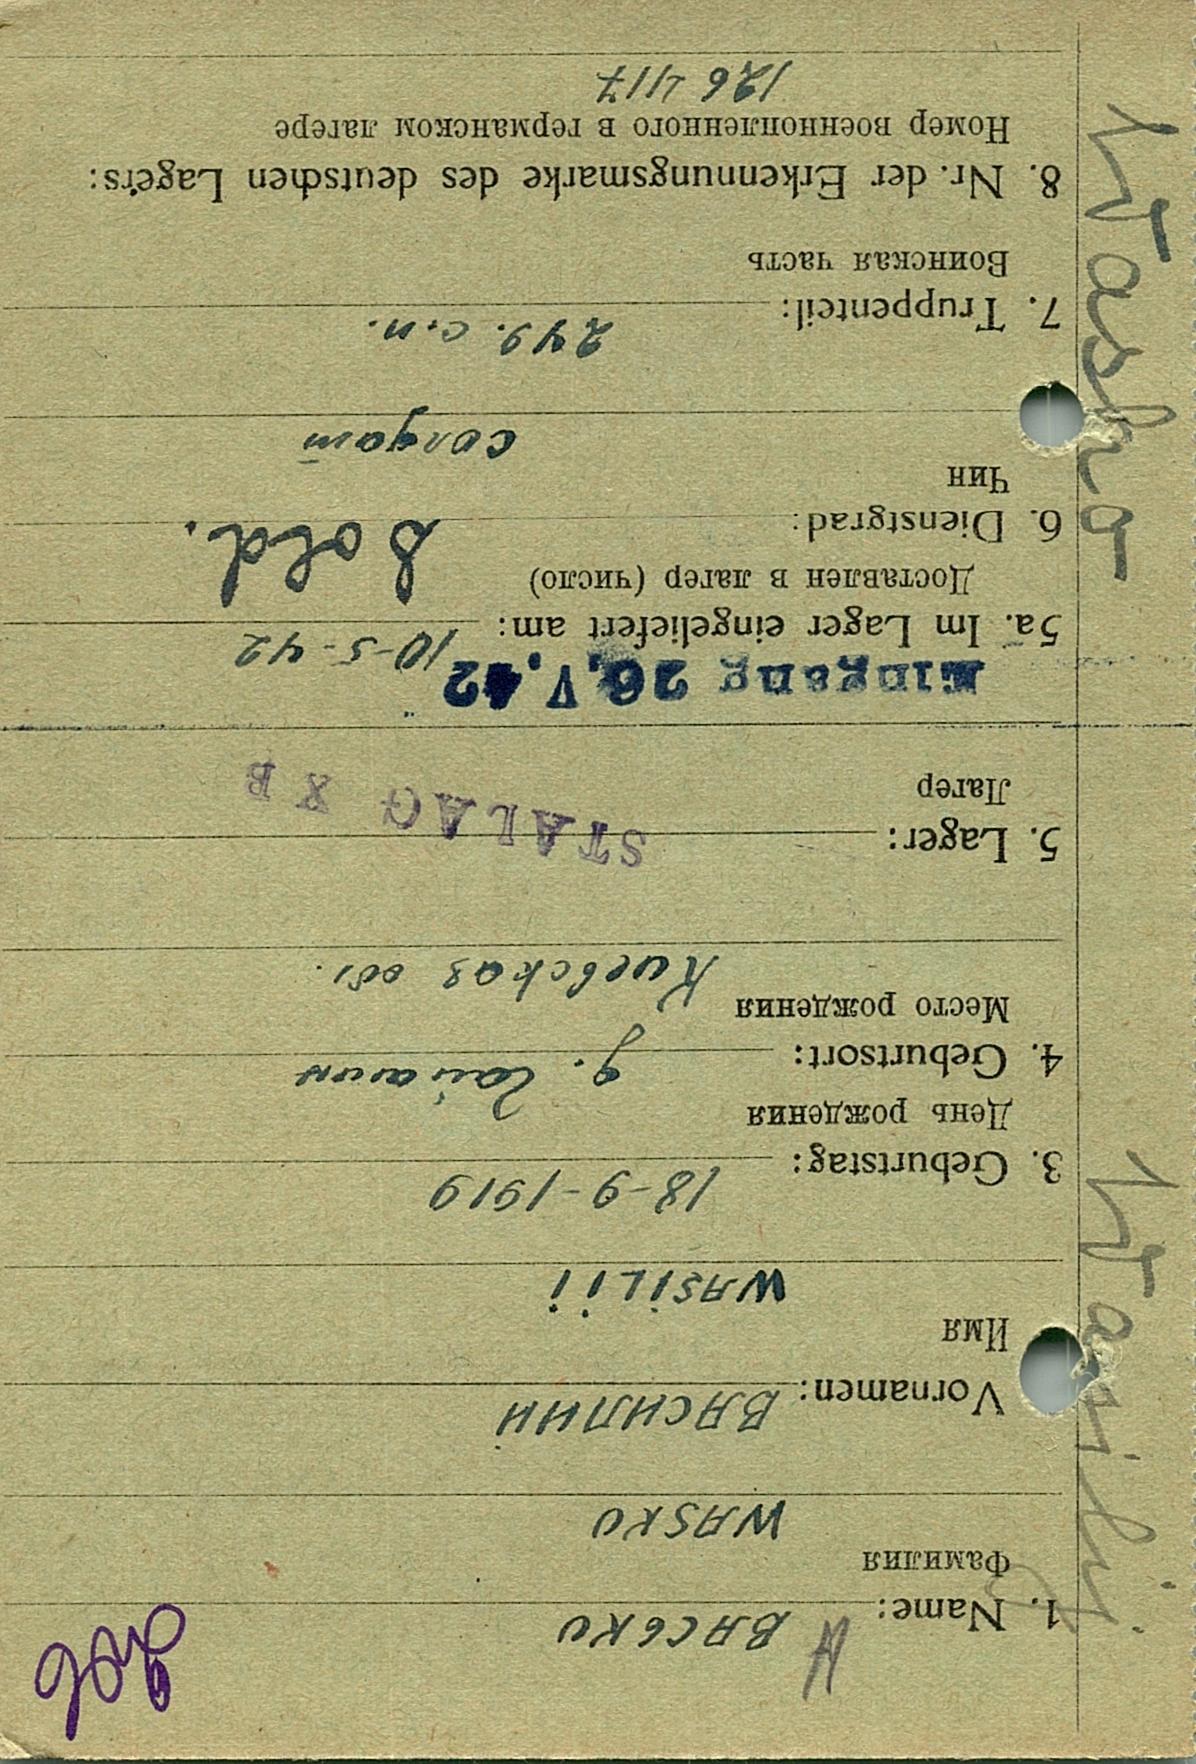 1. Name: ВАСЬКО
Фамилия
WASKO
Vornamen: ВАСИЛИЙ
Имя
WASiLii
3. Geburtstag: 18-9-1919
День рождения
4. Geburtsort: д.
Место рождения
Киевская обл.
5. Lager: STALAG X B
Лагер
Eingang 26. V. 42
5a. Im Lager eingeliefert am: 10-5-42
Доставлен в лагер (число)
6. Dienstgrad: Sold.
Чин
солдат
7. Truppenteil: 249. с.п.
Воинская часть
8. Nr. der Erkennungsmarke des deutschen Lagers:
Номер военнопленного в германском лагере
126 417
Wasilij Wasko